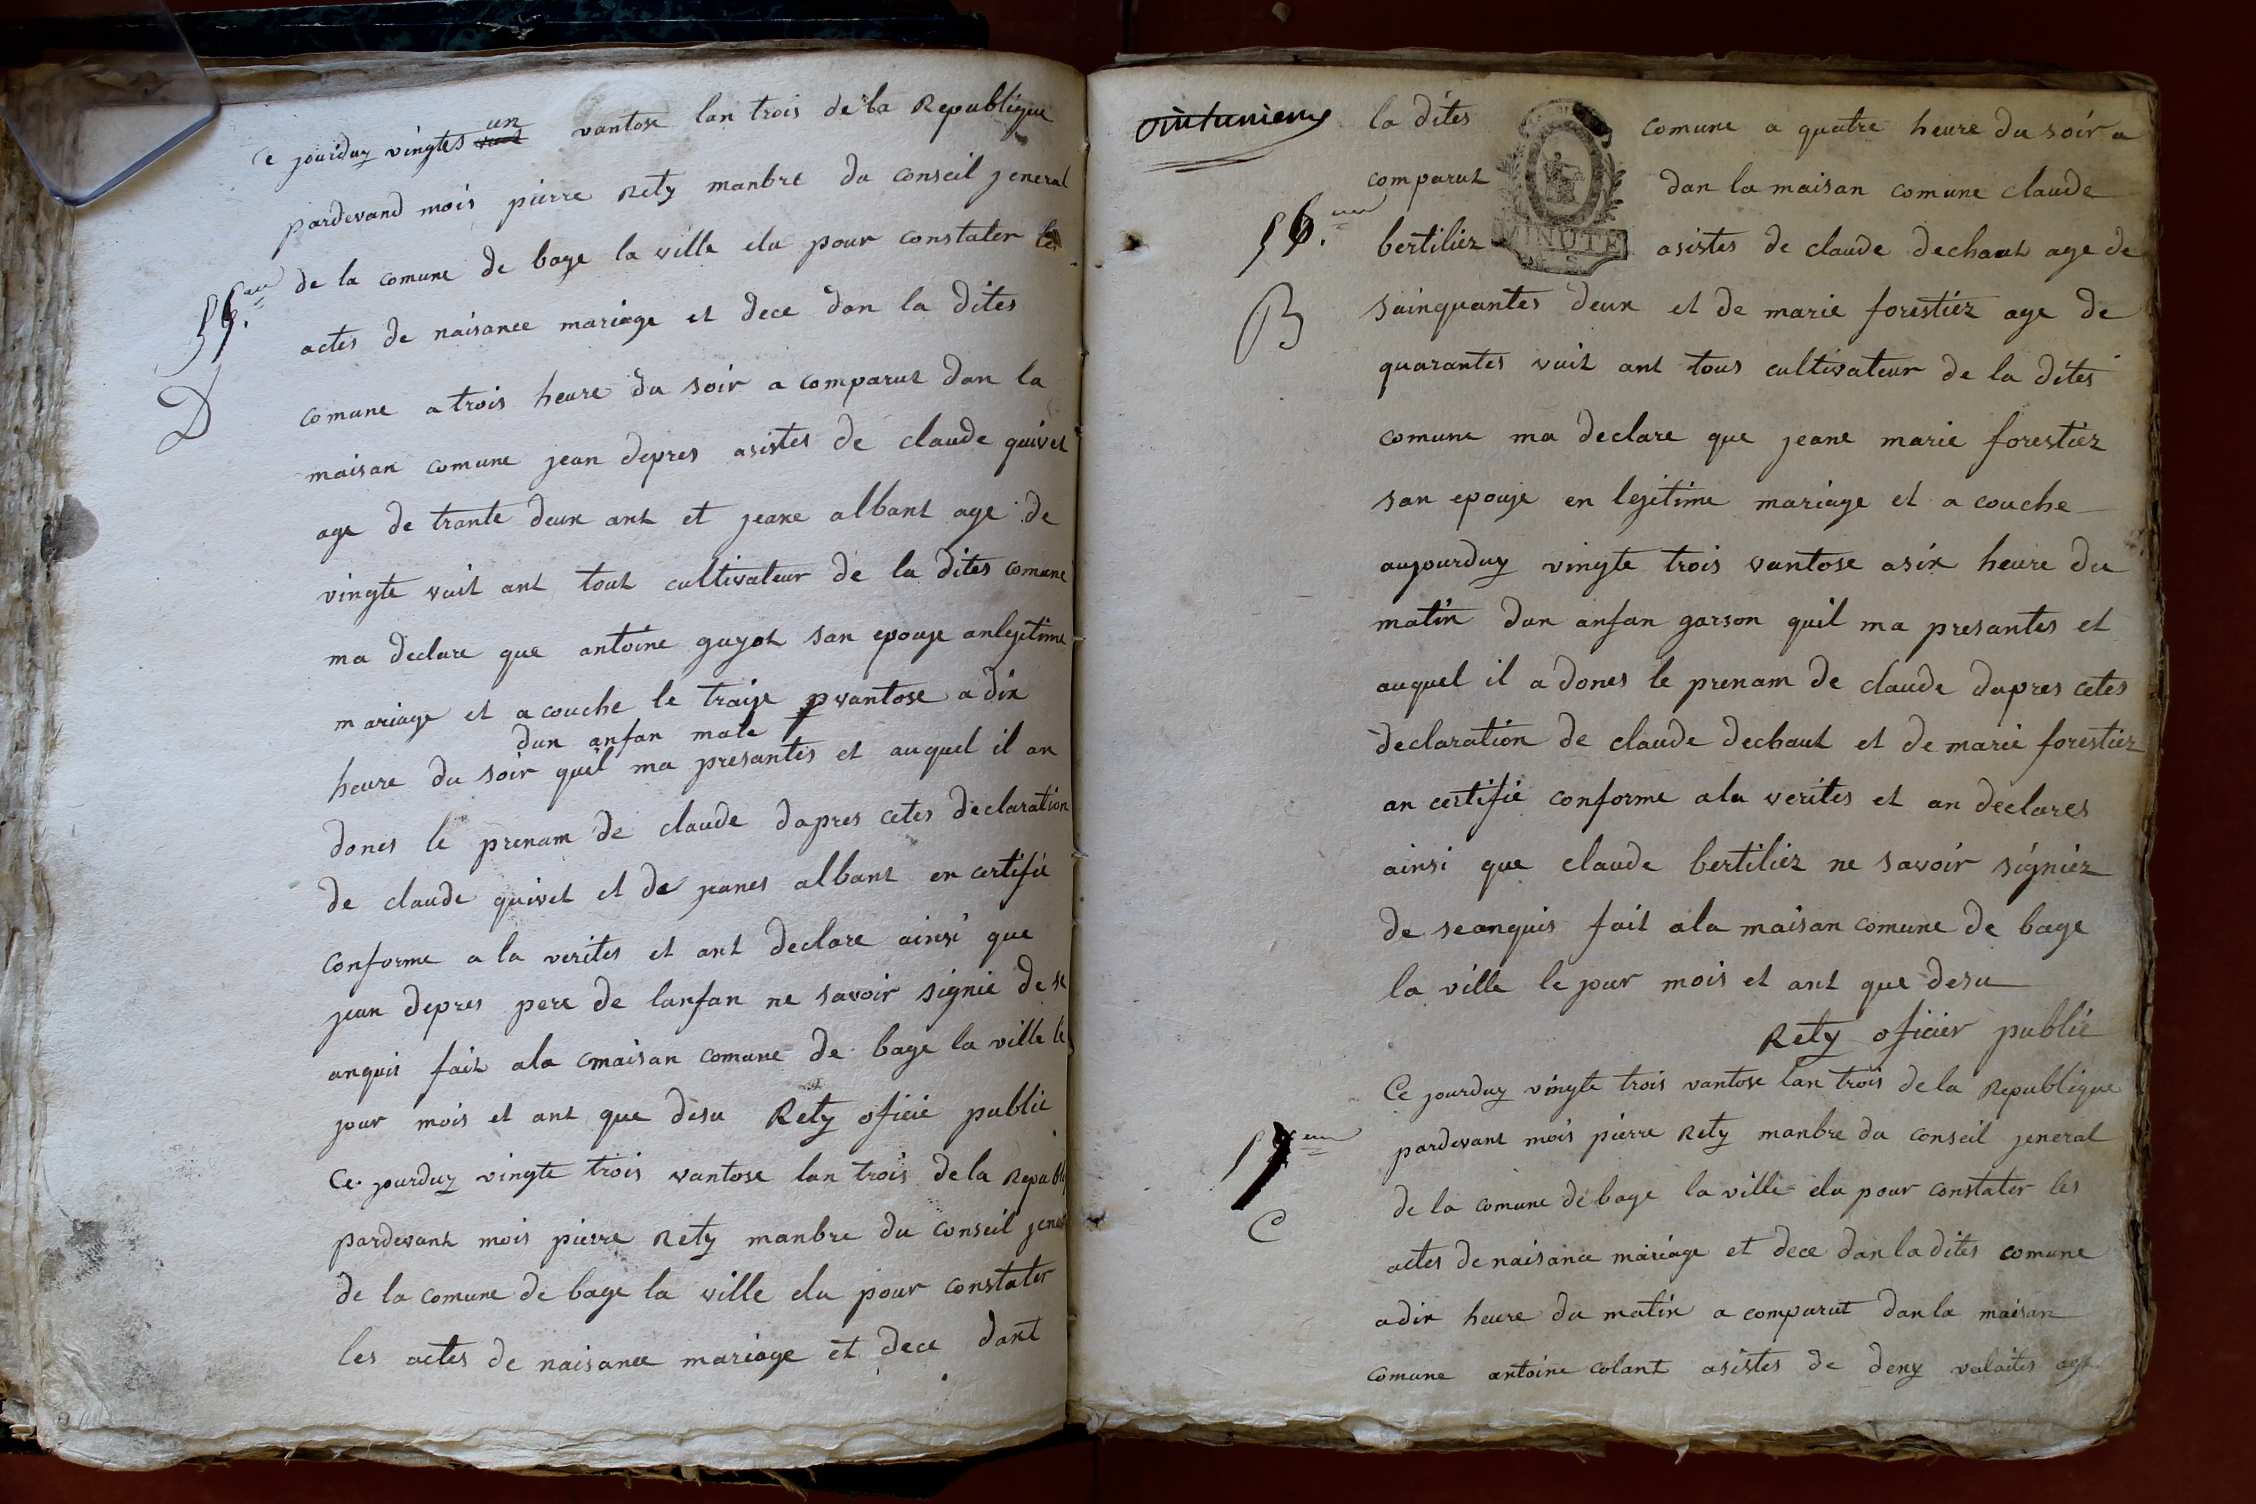 Ce jourduy vingtes un vantose lan trois de la Republique
pardevand mois pierre Rety manbre du conseil jeneral
de la comune de bage la ville elu pour constater les
actes de naisance mariage et dece dan la dites
comune a trois heure du soir a comparut dan la
maisan comune jean depres asistes de claude quivet
age de trante deux ant et jeane albant age de
vingte vuit ant tout cultivateur de la dites comune
ma declare que antoine guyot san epouse anlegitime
mariage et a couche le traise vantose a dix
dun anfan male
heure du soir quil ma presantes et auquel il an
dones le prenam de claude dapres cetes declaration
de claude quivet et de jeanes albant en certifié
conforme a la verites et ant declare ainsi que
jean depres pere de lanfan ne savoir signie de se
anquis fait ala cmaisan comune de bage la ville le
jour mois et ant que desu Rety oficié public
Ce jourduy vingte trois vantose lan trois de la Republiq
pardevant mois pierre Rety manbre du conseil jener
de la comune de bage la ville elu pour constater
les actes de naisance mariage et dece dant
D
vintunieme
la dites comune a quatre heure du soir a
comparut dan la maisan comune claude
MINUTE
56.eme
bertiliez asistes de claude dechaut age de
B
sainquantes deux et de marie forestiez age de
quarantes vuit ant tous cultivateur de la dites
comune ma declare que jeane marie forestiez
san epouse en legitime mariage et a couche
aujourduy vingte trois vantose asix heure du
matin dun anfan garson quil ma presantes et
auquel il a dones le prenam de claude dapres cetes
declaration de claude dechaut et de marie forestiez
an certifié conforme ala verites et an declares
ainsi que claude bertiliez ne savoir signiez
de seanquis fait ala maisan comune de bage
la ville le jour mois et ant que desu
Rety oficier public
Ce jourduy vingte trois vantose lan trois de la Republique
57eme
pardevant mois pierre Rety manbre du conseil jeneral
de la comune de bage la ville elu pour constater les
C
actes de naisance mariage et dece dan la dites comune
adix heure du matin a comparut dan la maisan
comune antoine colant asistes de deny valaites age